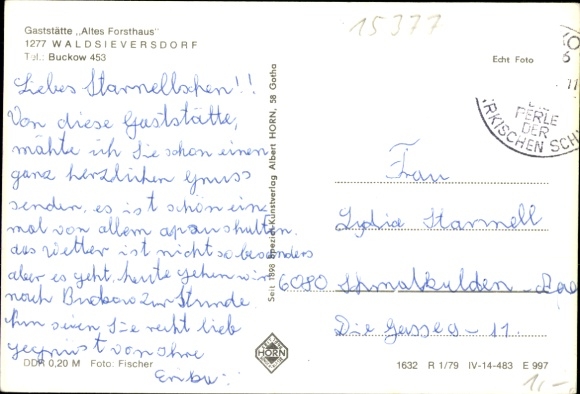 Gaststätte „Altes Forsthaus"
1277 WALDSIEVERSDORF
Tel.: Buckow 453
15377
Echt Foto
Liebes Starnellchen!!
Von diese Gaststätte,
mähte ich Sie schon einen
ganz herzlichen Gruss
senden, es ist schön eine
mal von allem
das Wetter ist nicht so besonders
aber es geht, heute gehen wir
nach Buckow zur Stunde
seien Sie recht lieb
gegrüst von Ihre
PERLE
DER
RKISCHEN SCH
Frau
Lydia Starnell
6080 Schmalkulden
Die Gasse - 11.
Seit 1898 Spezial-Kunstverlag Albert HORN, 58 Gotha
HORN
DDR 0,20 M Foto: Fischer
1632 R 1/79 IV-14-483 E 997
1,-